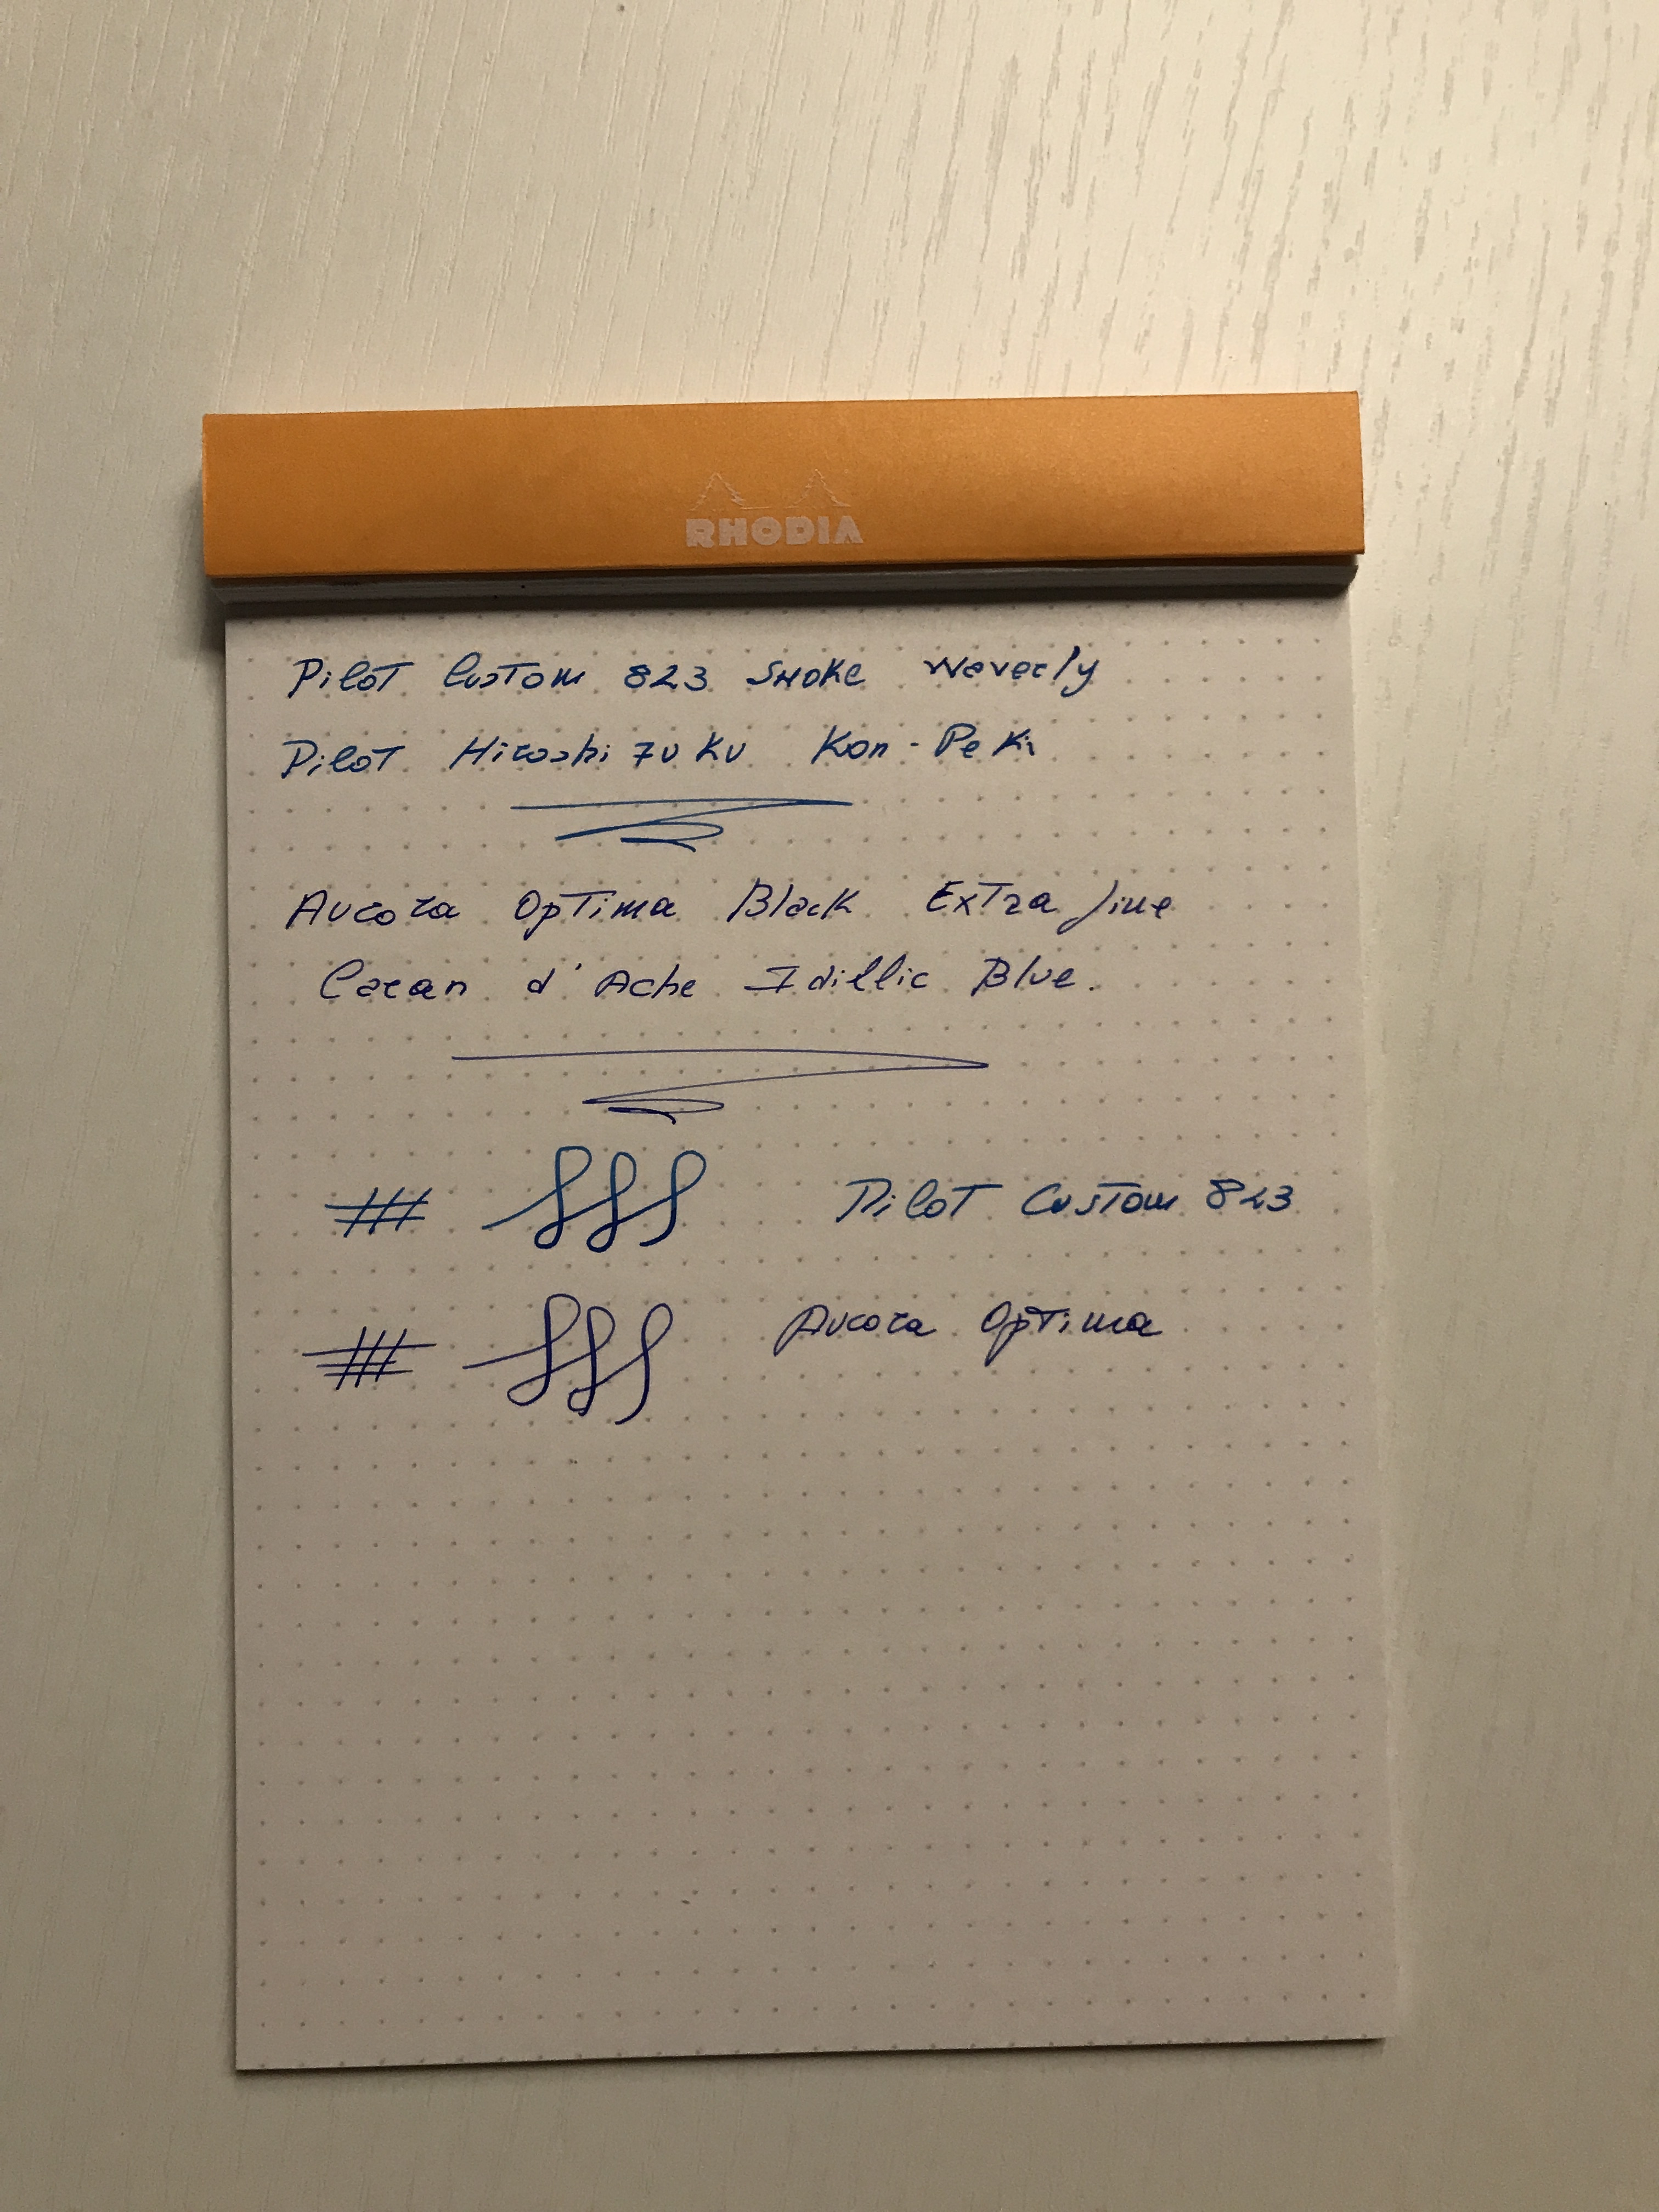 RHODIA
Pilot Custom 823 Smoke Waverly
Pilot Hiroshizuku Kon-Peki
Aurora Optima Black Extra fine
Caran d'Ache Idillic Blue.
Pilot Custom 823
Aurora Optima